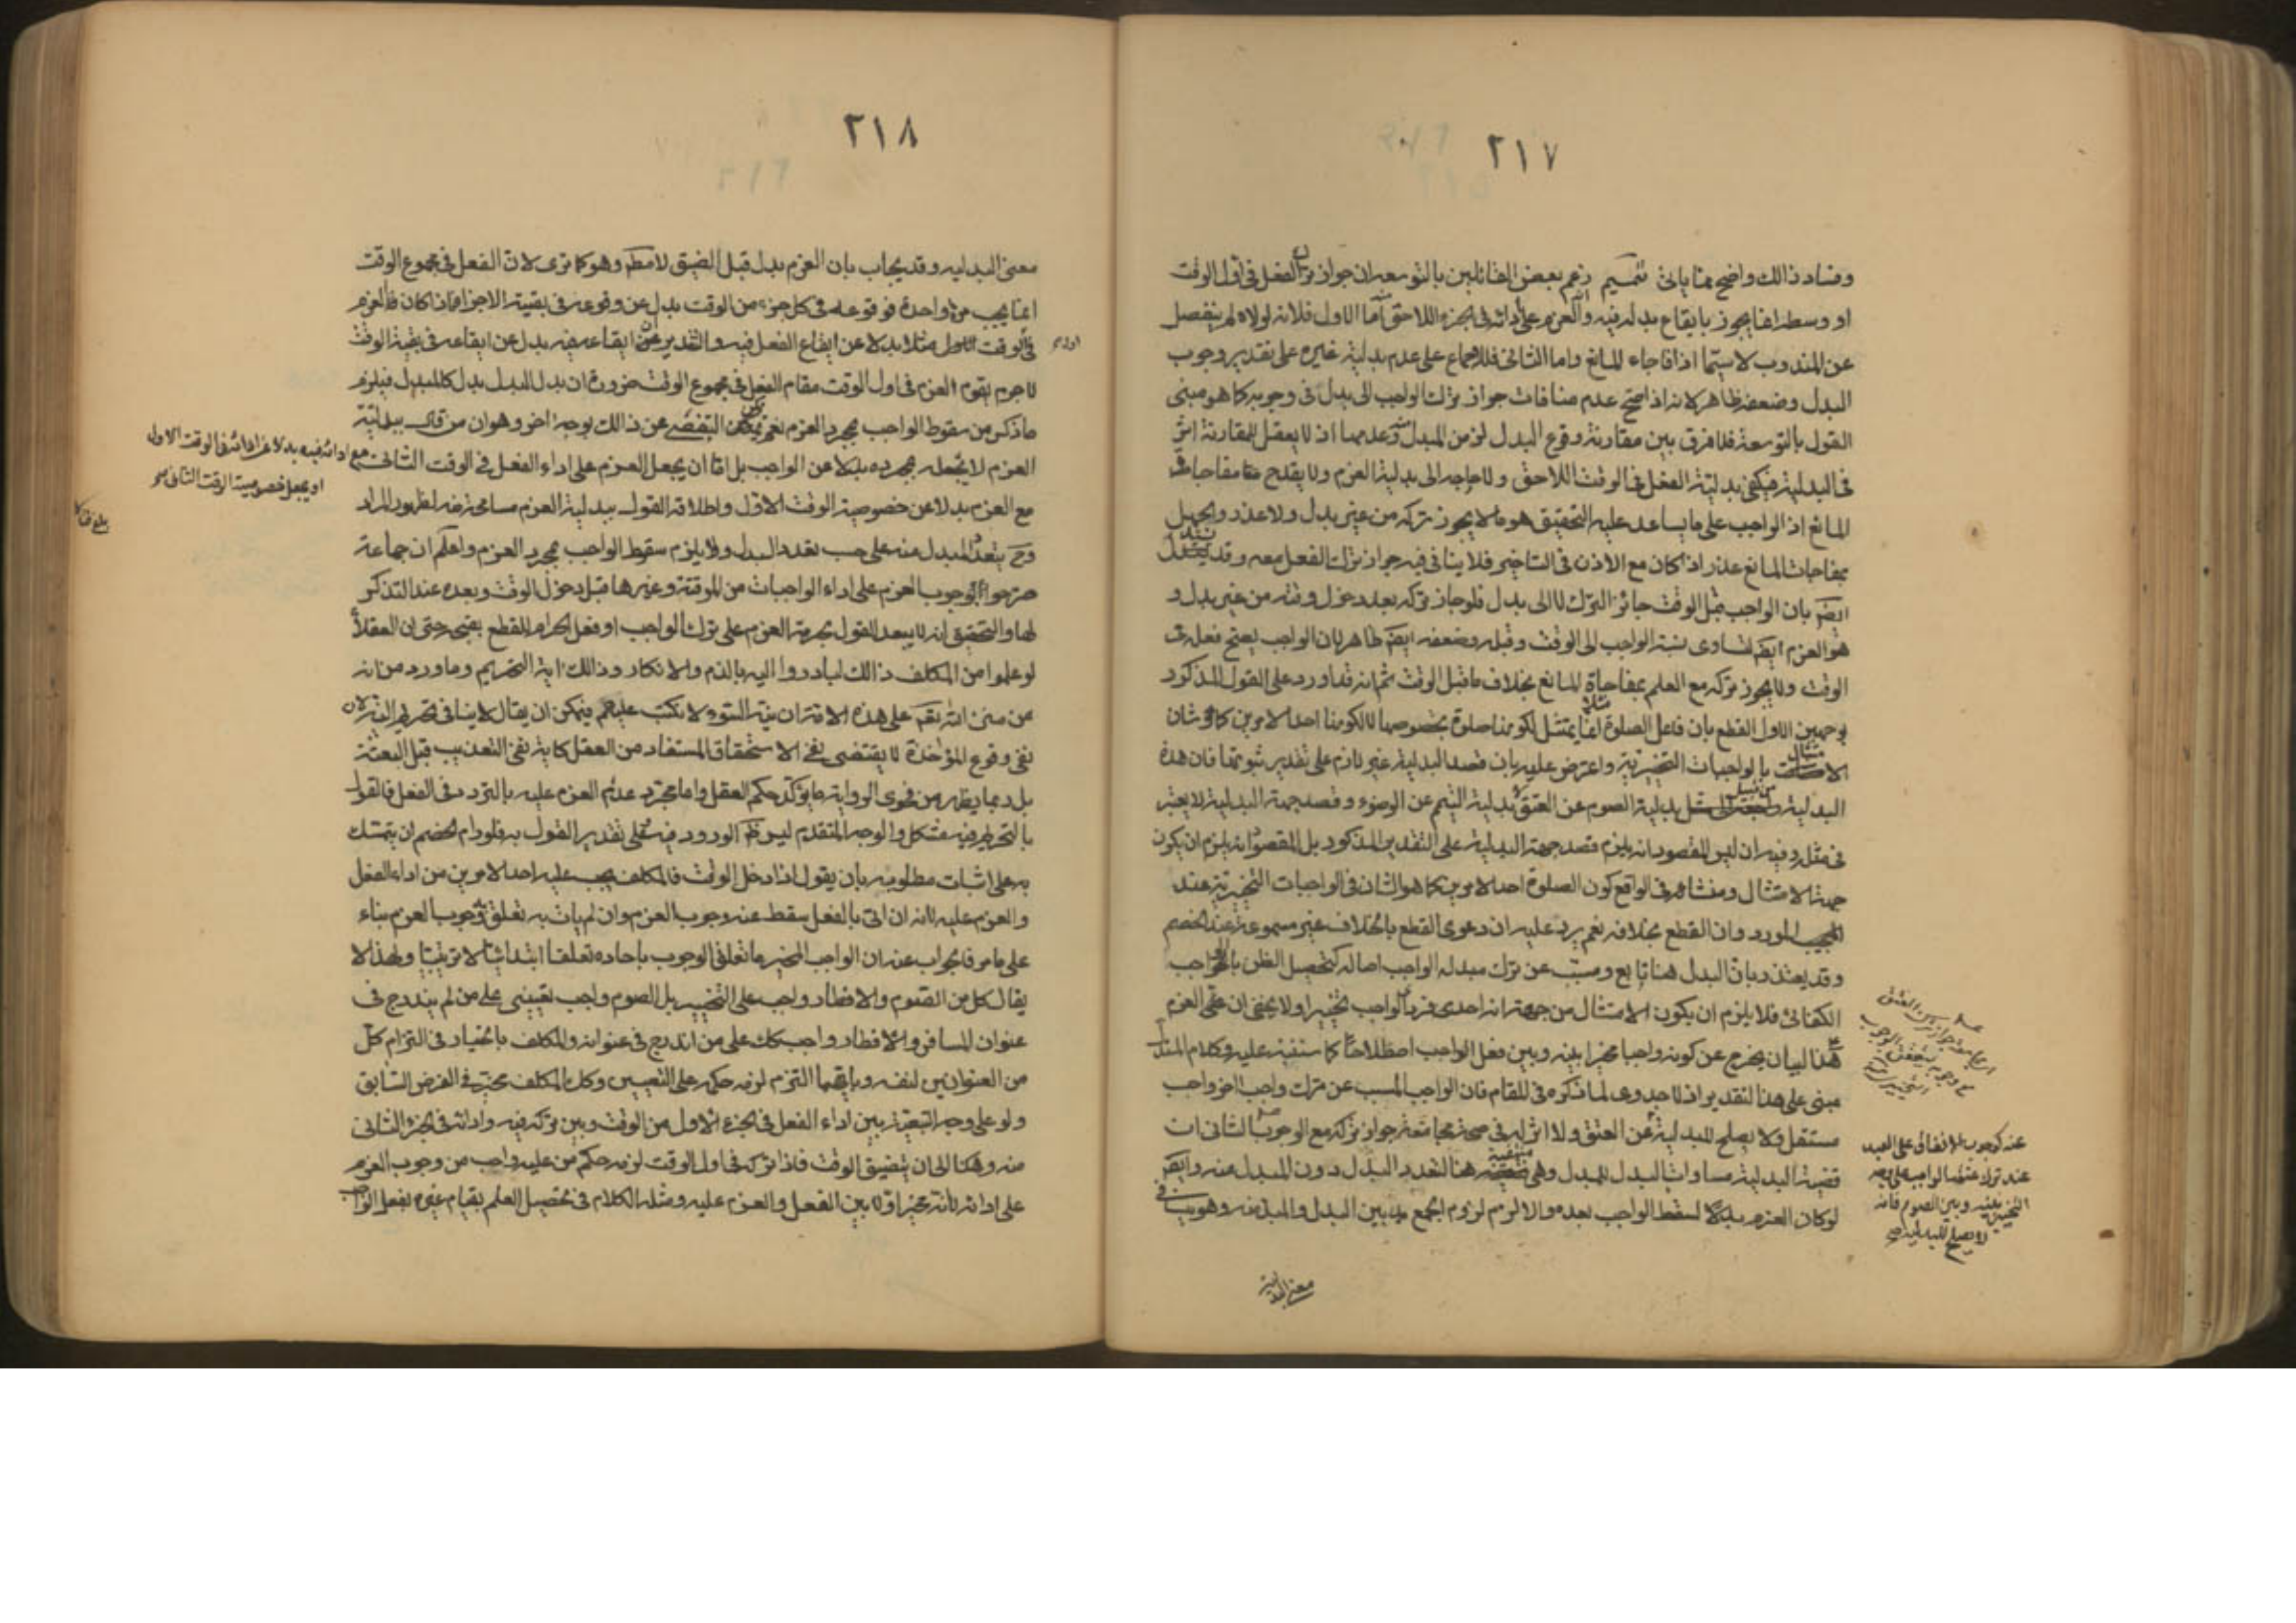 ٢١٧
وفساد ذالك واضح مما ياتى تتميم زعم بعض القائلين بالتوسعة ان جواز ترك الفعل فى اول الوقت
او وسطه انما يجوز بايقاع بدله فيه وانه العزم على أدائه فى الجزء اللاحق اما الاول فلانه لولاه لم ينفصل
عن المندوب لا سيما اذا فاجاء المانع واما الثانى فللاجماع على عدم بدلية غيره على تقدير وجوب
البدل وضعفه ظاهر لانه اذا اتضح عدم منافات جواز ترك الواجب الى بدل فى وجوبه كما هو مبنى
القول بالتوسعة فلا فرق بين مقارنة وقوع البدل لزمن المبدل منه وعدمها اذ لا يعقل للمقارنة اثر
فى البدلية فيكفى بدلية الفعل فى الوقت اللاحق ولا حاجه الى بدلية العزم ولا يقدح مفاجات
المانع اذ الواجب على ما يساعد عليه التحقيق هو ما لا يجوز تركه من غير بدل ولا عذر والجهل
بمفاجات المانع عذر اذا كان مع الاذن فى التاخير فلا ينافى فيه جواز ترك الفعل معه وقد يستدل
ايضا بان الواجب قبل الوقت جائز الترك لا الى بدل فلو جاز تركه بعد دخول وقته من غير بدل و
هو العزم ايضا لتساوى نسبة الواجب الى الوقت وقبله وضعفه ايضا ظاهر بان الواجب يصح فعله فى
الوقت ولا يجوز تركه مع العلم بمفاجاة المانع بخلاف ما قبل الوقت ثم انه قد اورد على القول المذكور
بوجهين الاول القطع بان فاعل الصلوة مثلا انما يمتثل لكونها صلوة بخصوصها لا لكونها احد الامرين كما هو شان
الامتثال بالواجبات التخييرية واعترض عليه بان قصد البدلية غير لازم على تقدير ثبوتها فان هذه
البدلية من قبيل بدلية الصوم عن العتق وبدلية التيمم عن الوضوء وقصد جهة البدلية لا يعتبر
فى مثله وفيه ان ليس المقصود انه يلزم قصد جهة البدلية على التقدير المذكور بل المقصود انه يلزم ان يكون
جهة الامتثال ومنشاهه فى الواقع كون الصلوة احد الامرين كما هو الشان فى الواجبات التخييرية عند
المورد وان القطع بخلافه نعم يرد عليه ان دعوى القطع بالخلاف غير مسموعة عند الخصم
وقد يعتذر بان البدل هنا تابع ومسبب عن ترك مبدله الواجب اصالة كتحصيل الظن بالواجب
الكفائى فلا يلزم ان يكون الامتثال من جهة انه احدى فردى الواجب تخييرا ولا يخفى ان العزم على
هذا البيان يخرج عن كونه واجبا مخيرا بينه وبين فعل الواجب اصطلاحا كما ستقف عليه وكلام المستدل
مبنى على هذا التقدير اذ لا جدوى لما ذكره فى المقام فان الواجب المسبب عن ترك واجب اخر واجب
مستقل ولا يصلح للبدلية عن العتق ولا اثر له فى صحة مجامعة جواز تركه مع الوجوب الثانى ان
قضية البدلية مساوات البدل للمبدل وهى منتفية هنا لتعدد البدل دون المبدل عنه وايضا
لو كان العزم بدلا لسقط الواجب بعده والا لزم لزوم الجمع بين البدل والمبدل منه وهو ينافى
عنه كوجوب الانفاق على العبد
عند ترك عتقه الواجب على وجه
التخيير بينه وبين الصوم فانه
لا يصلح للبدلية صح
معنى البدلية
٢١٨
معنى البدليه وقد يجاب بان العزم بدل قبل الضيق لا مطلقا وهو كما ترى لان الفعل فى مجموع الوقت
انما يجب مرة واحدة فوقوعه فى كل جزء من الوقت بدل عن وقوعه فى بقية الاجزاء فاذا كان العزم
فى الوقت الاول مثلا بدلا عن ايقاع الفعل فيه والتقدير ان ايقاعه فيه بدل عن ايقاعه فى بقية الوقت
لا جرم يقوم العزم فى اول الوقت مقام الفعل فى مجموع الوقت ضرورة ان بدل البدل بدل كالمبدل فيلزم
ما ذكر من سقوط الواجب بمجرد العزم نعم يمكن التفصى عن ذالك بوجه اخر وهو ان من قال ببدلية
العزم لا يجعله بمجرده بدلا عن الواجب بل اما ان يجعل العزم على اداء الفعل فى الوقت الثانى
مع ادائه فيه بدلا عن ادائه فى الوقت الاول
او يجعل خصوصية الوقت الثانى صح
مع العزم بدلا عن خصوصية الوقت الاول واطلاق القول ببدلية العزم مسامحة منه لظهور المراد
وح يتعدد المبدل منه على حسب تعدد البدل ولا يلزم سقوط الواجب بمجرد العزم واعلم ان جماعة
صرحوا بوجوب العزم على اداء الواجبات من الموقتة وغيرها قبل دخول الوقت وبعده عند التذكر
لها والتحقيق انه لا يبعد القول بحرمة العزم على ترك الواجب او فعل الحرام للقطع بقبحه حتى ان العقلاء
لو علموا من المكلف ذالك لبادروا اليه بالذم والانكار وذالك اية التحريم وما ورد من انه
من منن الله تعالى على هذه الامة ان نية السوء لا تكتب عليهم فيمكن ان يقال لا ينافى تحريم النية لان
نفى وقوع المؤاخذة لا يقتضى نفى الاستحقاق المستفاد من العقل كاية نفى التعذيب قبل البعثة
بل ربما يظهر من فحوى الرواية ما يؤكد حكم العقل واما مجرد عدم العزم عليه بالتردد فى الفعل فالقول
بالتحريم فيه مشكل والوجه المتقدم ليس ظاهر الورود فيه وعلى تقدير القول به فلو رام الخصم ان يتمسك
به على اثبات مطلوبه بان يقول اذا دخل الوقت فالمكلف يجب عليه احد الامرين من اداء الفعل
والعزم عليه لانه ان اتى بالفعل سقط عنه وجوب العزم وان لم يات به تعلق به وجوب العزم بناء
على ما مر فالجواب عنه ان الواجب المخير ما تعلق الوجوب باحاده تعلقا ابتدائيا لا ترتيبيا ولهذا لا
يقال كل من الصوم والافطار واجب على التخيير بل الصوم واجب تعيينى على من لم يندرج فى
عنوان المسافر والافطار واجب كك على من اندرج فى عنوانه والمكلف بالخيار فى التزام كل
من العنوانين لنفسه وبايهما التزم لزمه حكمه على التعيين وكك المكلف مخير فى الفرض السابق
ولو على وجه التبعية بين اداء الفعل فى الجزء الاول من الوقت وبين تركه فيه وادائه فى الجزء الثانى
منه وهكذا الى ان يتضيق الوقت فاذا تركه فى اول الوقت لزمه حكم من عليه واجب من وجوب العزم
على ادائه لا انه مخير اولا بين الفعل والعزم عليه ومثله الكلام فى تحصيل العلم بقيام غيره بفعل الواجب